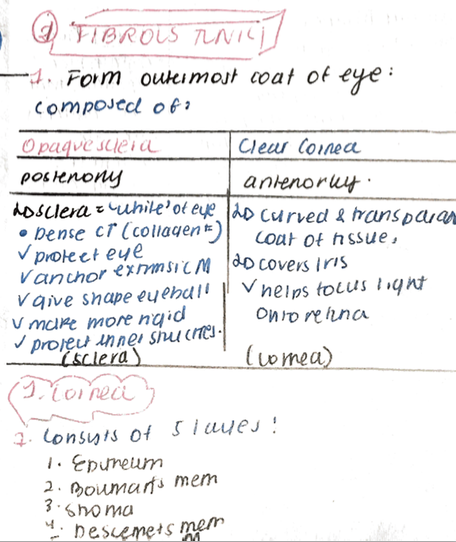 ① FIBROUS TUNIC
1. Form outermost coat of eye:
composed of:
Opaque sclera
Clear Cornea
posteriorly
anteriorly.
↳ sclera = "white" of eye
• Dense CT (collagen
✓ protect eye
✓ anchor extrinsic M
✓ give shape eyeball
✓ make more rigid
✓ protect inner structures.
(sclera)
↳ curved & transparan
coat of tissue,
↳ covers iris
✓ helps focus light
onto retina
(cornea)
1. Cornea
1. Consists of 5 layes:
1. Epitheum
2. Boumans mem
3. Stroma
4. Descemets mem